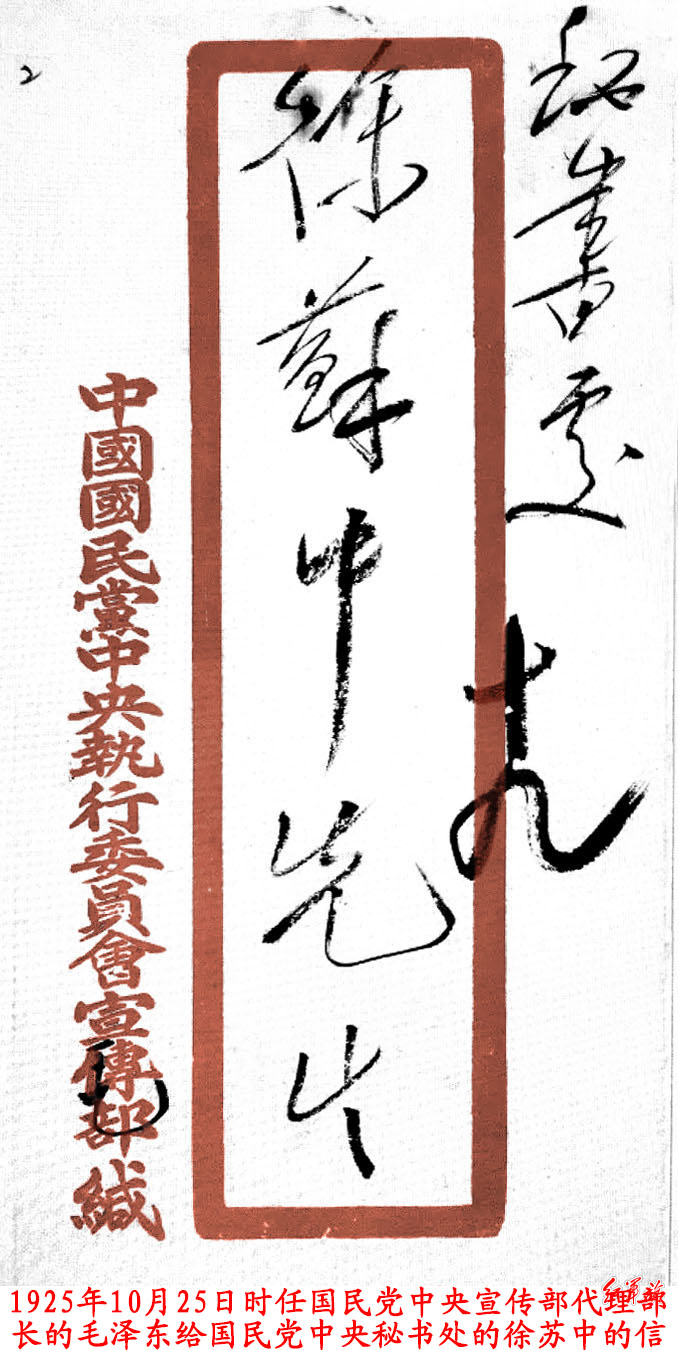 秘書處
徐蘇中先生
中國國民黨中央執行委員會宣傳部緘
2
1925年10月25日时任国民党中央宣传部代理部
长的毛泽东给国民党中央秘书处的徐苏中的信